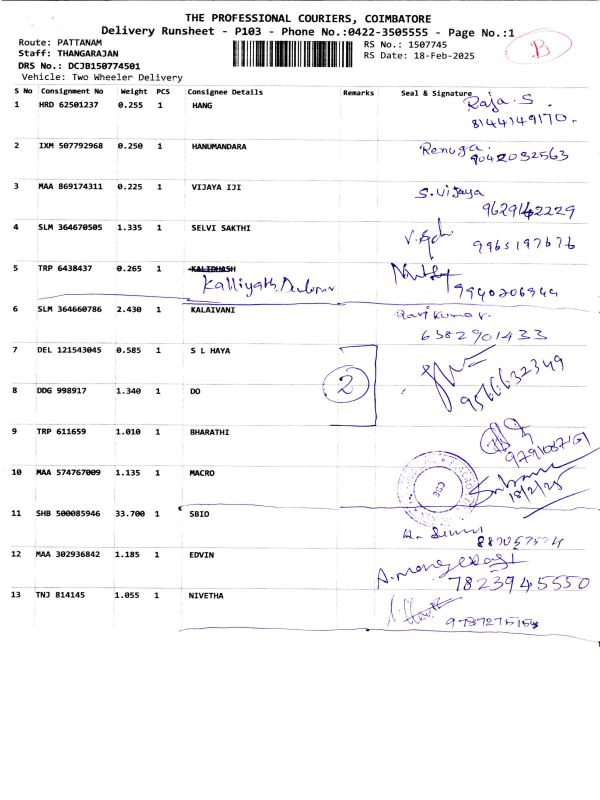 THE PROFESSIONAL COURIERS, COIMBATORE
Delivery Runsheet - P103 - Phone No.:0422-3505555 - Page No.:1
Route: PATTANAM
RS No.: 1507745
B
Staff: THANGARAJAN
RS Date: 18-Feb-2025
DRS No.: DCJB150774501
Vehicle: Two Wheeler Delivery
S No Consignment No Weight PCS Consignee Details Remarks Seal & Signature
1 HRD 62501237 0.255 1 HANG Raja. S.
8144149170.
2 IXM 507792968 0.250 1 HANUMANDARA Renuga.
9042032563
3 MAA 869174311 0.225 1 VIJAYA IJI S. Vijaya
9629142229
4 SLM 364670505 1.335 1 SELVI SAKTHI
9965197676
5 TRP 6438437 0.265 1 KALIDHASH
Kalliyath
9940206944
6 SLM 364660786 2.430 1 KALAIVANI Ravi Kumar
6382901433
7 DEL 121543045 0.585 1 S L HAYA
2
9566632349
8 DDG 998917 1.340 1 DO
9 TRP 611659 1.010 1 BHARATHI
10 MAA 574767009 1.135 1 MACRO
18/2/25
11 SHB 500085946 33.700 1 SBIO
12 MAA 302936842 1.185 1 EDVIN
7823945550
13 TNJ 814145 1.055 1 NIVETHA